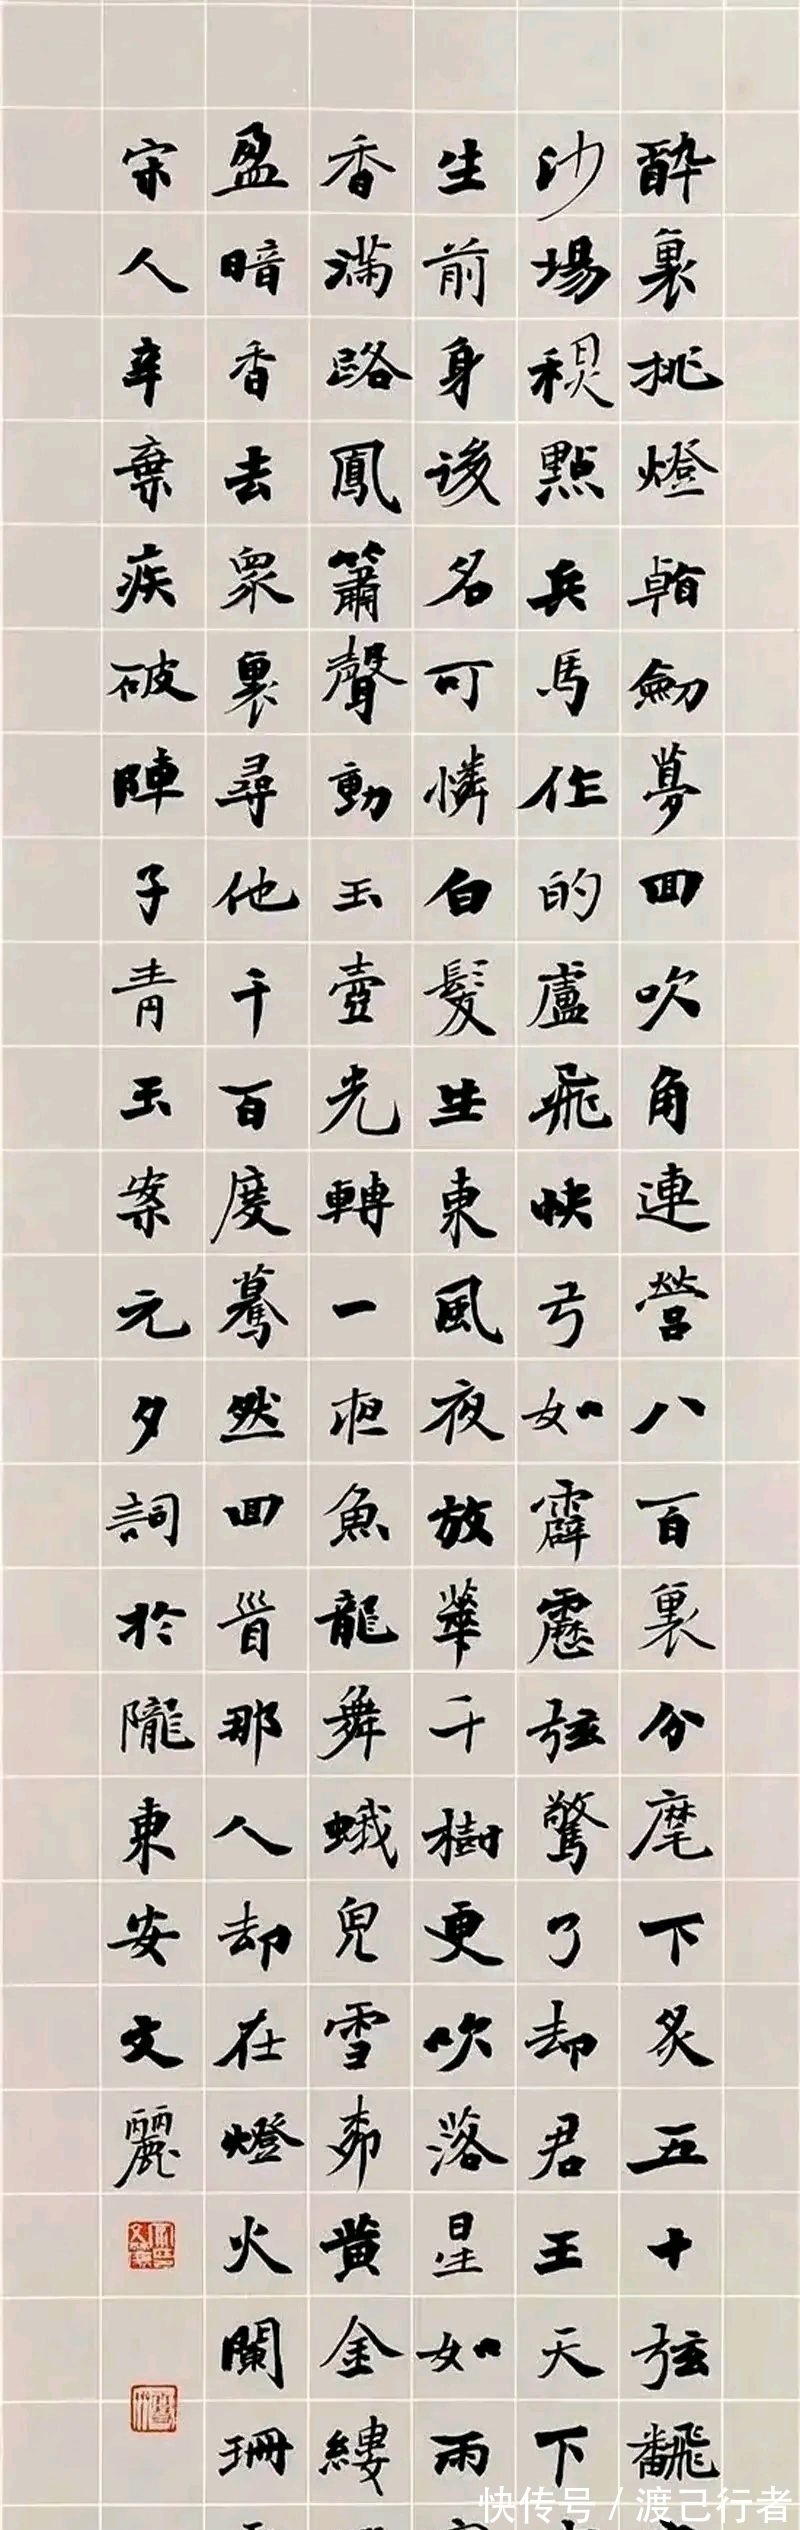 醉裏挑燈看劒夢回吹角連營八百裏分麾下炙五十弦飜
沙場穐點兵馬作的盧飛快弓如霹靂弦驚了却君王天下
生前身後名可憐白髮生東風夜放華千樹更吹落星如雨
香滿路鳳簫聲動玉壺光轉一夜魚龍舞蛾兒雪柳黃金縷
盈暗香去衆裏尋他千百度驀然回首那人却在燈火闌珊
宋人辛棄疾破陣子青玉案元夕詞於隴東安文麗
快传号/渡己行者